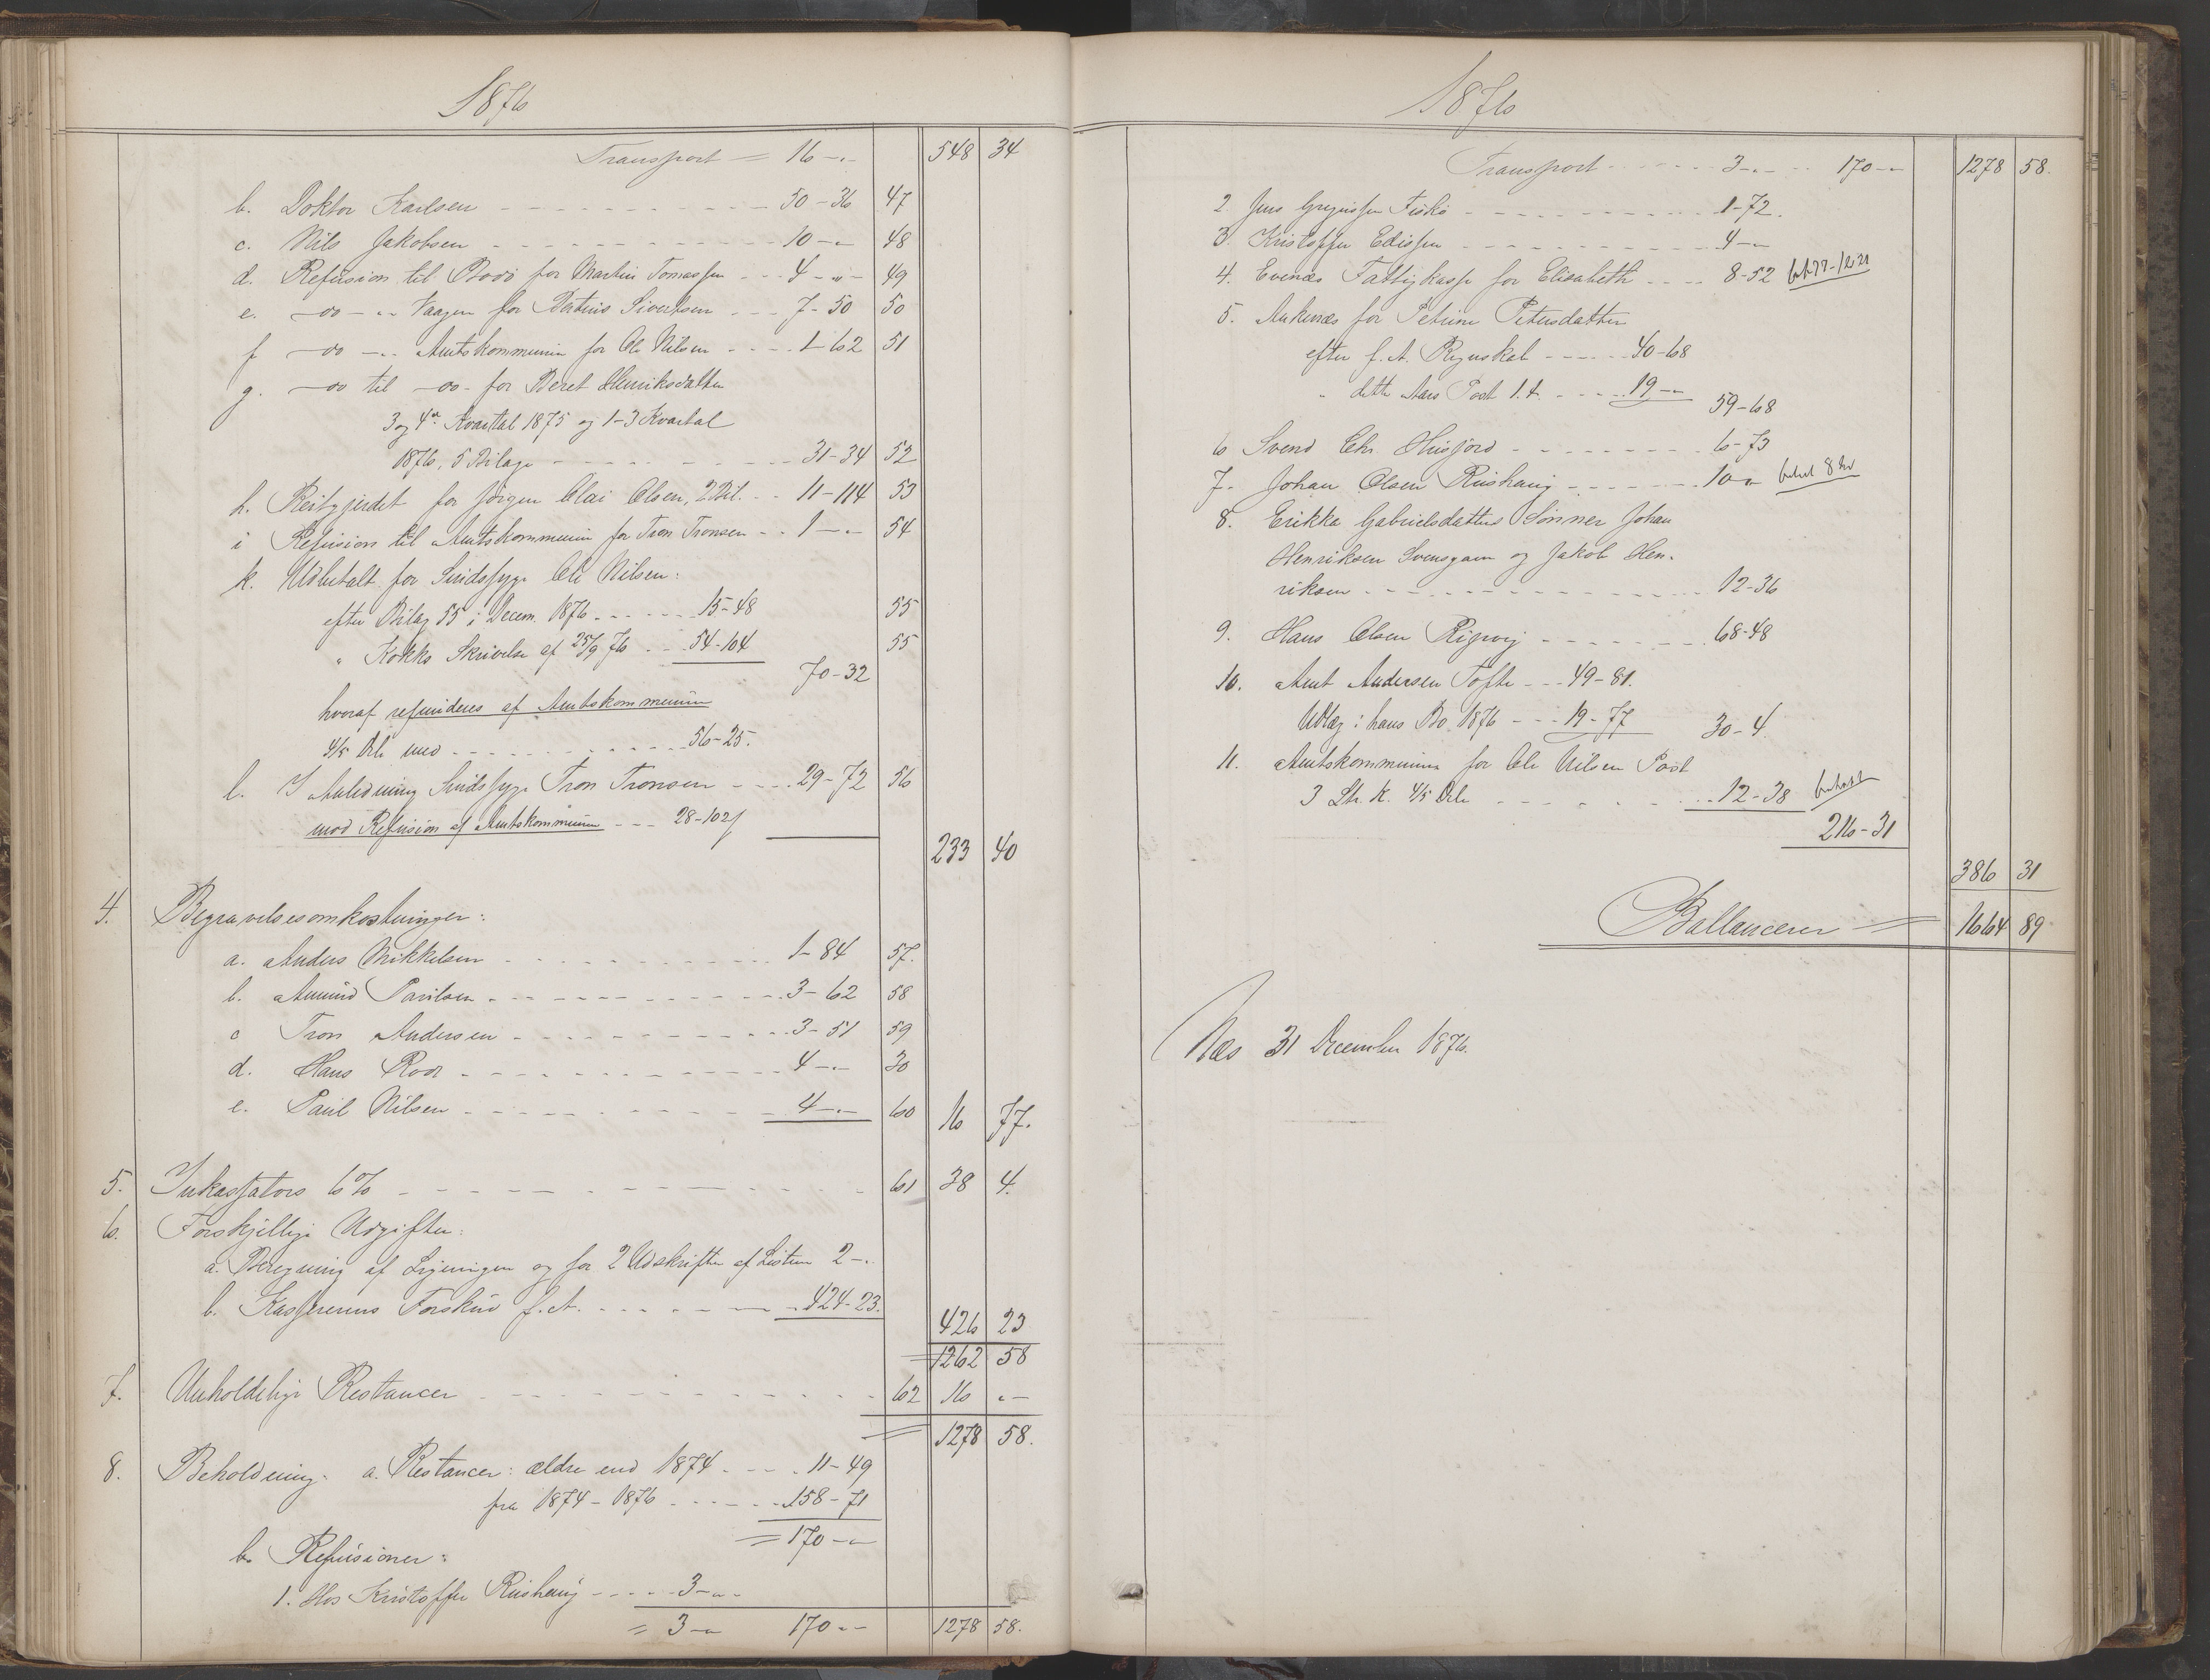 1876
Transport = 16 - „ - 548 34
b. Doktor Karlsen - - - 50 - 36 47
c. Nils Jakobsen - - - 10 - „ 48
d. Refusion til Bodö for Martin Tomassen - - - 4 - „ - 49
e. -oo- „ Vaagen for Petrus Sivertsen - - - 7 - 50 50
f -oo- „ Amtskommunen for Ole Nilsen - - - 1 - 62 51
g. -oo til -oo- for Beret Henriksdatter
3 og 4de Kvartal 1875 og 1-3 Kvartal
1876, 5 Bilage - - - 31 - 34 52
h. for Jörgen Olai Olsen, 2 Bil. - - 11 - 114 53
i Refusion til Amtskommunen for Tron Tronsen - - 1 - „ - 54
k. Udbetalt for Sindssyge Ole Nilsen:
efter Bilag 55 i Decem. 1876 - - - 15 - 48 55
„ Kokks Skrivelse af 25/9 76 - - - 54 - 104 55
70 - 32
hvoraf refunderes af Amtskommunen
4/5 Dele med - - - 56 - 25.
l. I Anledning Sindssyge Tron Tronsen - - - 29 - 72 56
mod Refusion af Amtskommunen - - - 28 - 102
233 40
4. Begravelsesomkostninger:
a. Anders Mikkelsen - - - 1 - 84 57.
b. Amund Paulsen - - - 3 - 62 58
c Tron Andersen - - - 3 - 51 59
d. Hans - - - 4 - „ - 30
e. Paul Nilsen - - - 4 - „ - 60 16 77.
5. Inkassators 6% - - - 61 38 4.
6. Forskjellige Udgifter:
a. Beregning af Ligningen og for 2 Udskrifter af Listen 2 - „
b. Kassererens Forskud f. A. - - - 424 - 23.
426 23
= 1262 58
7. Uerholdelige Restancer - - - 62 16 „ -
= 1278 58.
8. Beholdning: a. Restancer: ældre end 1874 - - - 11 - 49
fra 1874 - 1876 - - - 158 - 71
= 170 - „
b. Refusioner:
1. Hos Kristoffer Rushaug - - - 3 - „ -
= 3 - „ 170 „ - 1278 58.
1876
Transport - - - 3 - „ - - 170 - „ 1278 58.
2. Jens Fiskö - - - 1 - 72.
3. Kristoffer Edissen - - - 4 - „
4. Evenæs Fattigkasse for Elisabeth - - - 8 - 52
5. Ankenæs for Petrine Petersdatter
efter f. A. Regnskab - - - 40 - 68
„ dette Aars Post 1. d. - - - 19 - „
59 - 68
6 Svend Chr. Husjord - - - 6 - 73
7. Johan Olsen Rushaug - - - 10 „ betalt 8
8. Erikka Gabrielsdatters Sönner Johan
Henriksen Svensgam og Jakob Hen-
riksen - - - 12 - 36
9. Hans Olsen - - - 68 - 48
10. Arnt Andersen Tofte - - - 49 - 81.
Udlæg i hans Bo 1876 - - - 19 - 77 30 - 4
11. Amtskommunen for Ole Nilsen Post
3 Litr. k. 4/5 Dele - - - 12 - 38 betalt
216 - 31
386 31
Ballancerer = 1664 89
Næs 31 December 1876.